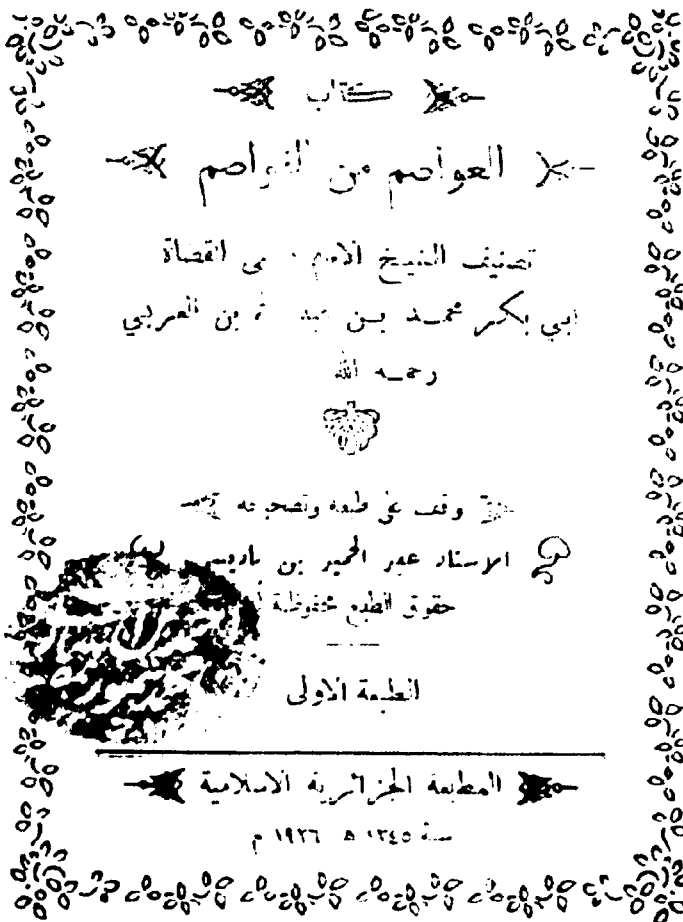 كتاب
العواصم من القواصم
تصنيف الشيخ الامام القضاة
ابي بكر محمد بن عبد بن العربي
رحمه الله
وقف على طبعه وتصحيحه
الاستاذ عبد الحميد بن باديس
حقوق الطبع محفوظة
الطبعة الاولى
المطبعة الجزائرية الاسلامية
سنة ١٣٤٥ ه ١٩٢٦ م